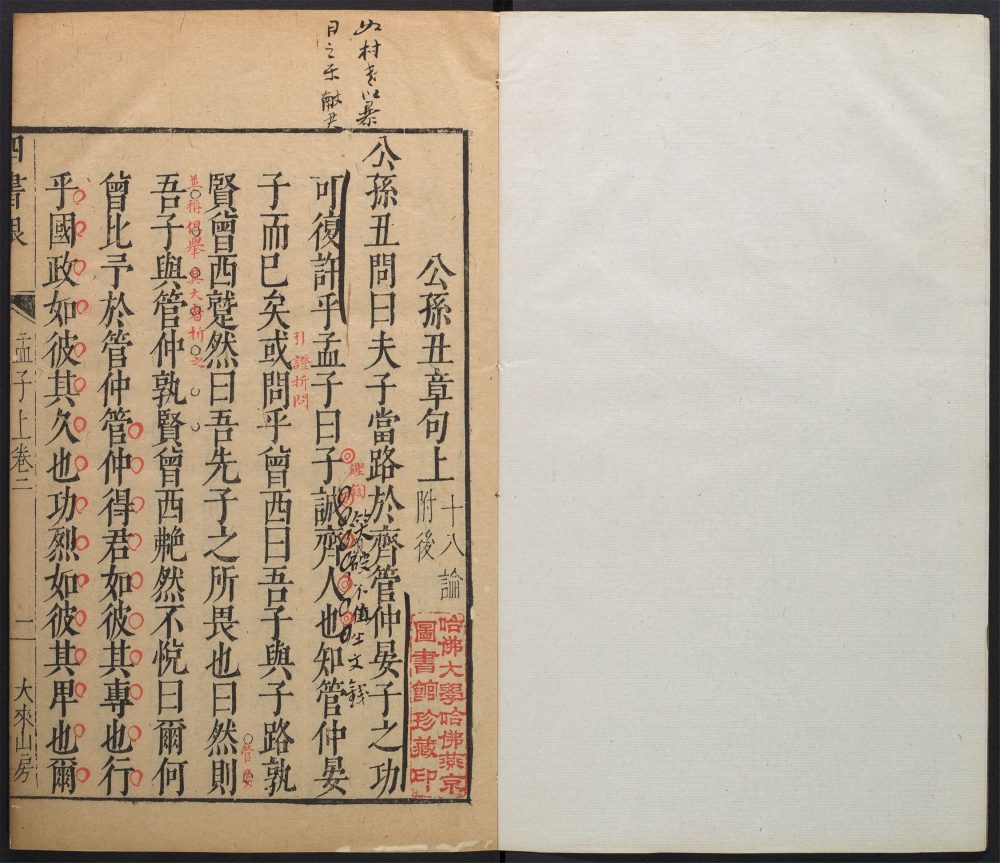 如村老以暴
日之乐献君
公孫丑章句上
十八論
附後
公孫丑問曰夫子當路於齊管仲晏子之功
可復許乎孟子曰子誠齊人也知管仲晏
子而已矣或問乎曾西曰吾子與子路孰
賢曾西蹵然曰吾先子之所畏也曰然則
吾子與管仲孰賢曾西艴然不悅曰爾何
曾比予於管仲管仲得君如彼其專也行
乎國政如彼其久也功烈如彼其甲也爾
笑破不值半文錢
引證折問
哈佛大學哈佛燕京
圖書館珍藏印
四書眼
孟子上卷二
二
大來山房